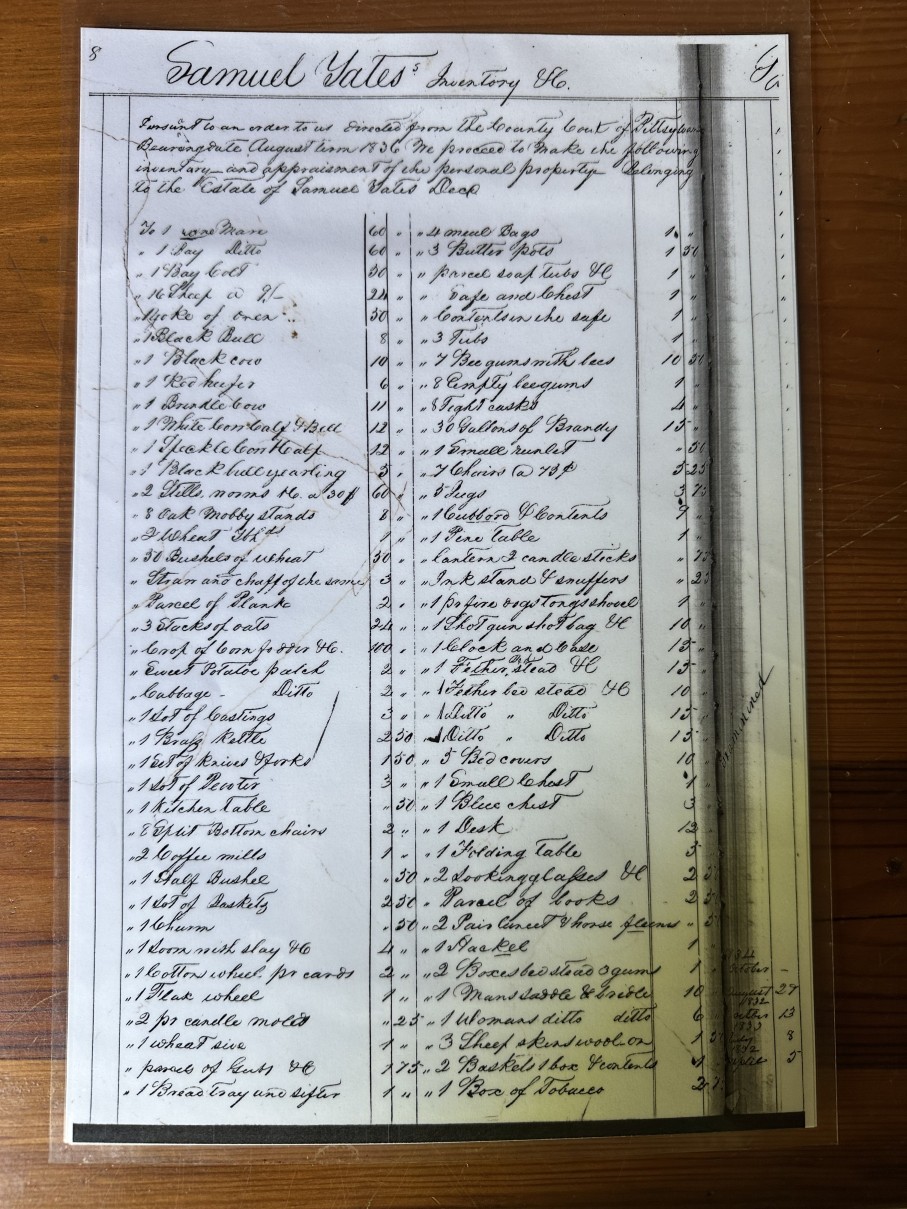 8
Samuel Yates's Inventory &C.
Pursuant to an order to us directed from the County Court of Pittsylvania
Bearing date August term 1836 We proceed to make the following
inventory and appraisment of the personal property belonging
to the Estate of Samuel Yates Decd
To 1 rone Mare 60 "
" 1 Bay Ditto 60 "
" 1 Bay Colt 50 "
" 16 Sheep a 9/- 24 "
" 1 yoke of oxen 50 "
" 1 Black Bull 8 "
" 1 Black cow 10 "
" 1 Red heifer 6 "
" 1 Brindle Cow 11 "
" 1 White Cow Calf & Bell 12 "
" 1 Speckle Cow & Calf 12 "
" 1 Black bull yearling 5 "
" 2 Stills, worms &c. a 30$ 60 "
" 8 Oak Mobby stands 8 "
" 2 Wheat 1 "
" 50 Bushels of wheat 50 "
" Straw and chaff of the same 3 "
" Parcel of Plank 2 "
" 3 Stacks of oats 24 "
" Crop of Corn fodder &C. 100 "
" Sweet Potatoe patch 2 "
" Cabbage - Ditto 2 "
" 1 Lot of Castings 3 "
" 1 Brass Kettle 2 50
" 1 Set of Knives & forks 1 50
" 1 Lot of Pewter 3 "
" 1 Kitchen table " 50
" 8 Split Bottom chairs 2 "
" 2 Coffee mills 1 "
" 1 Half Bushel " 50
" 1 Lot of Baskets 2 50
" 1 Churm " 50
" 1 Loom with slay &C 4 "
" 1 Cotton wheel pr cards 2 "
" 1 Flax wheel 1 "
" 2 pr candle molds " 25
" 1 wheat sive 1 "
" parcel of Gubs &C 1 75
" 1 Bread tray and sifter 1 "
" 4 meal Bags 1 "
" 3 Butter pots 1 50
" parcel soap tubs &C 1 "
" Safe and Chest 1 "
" Contents in the safe 1 "
" 3 Tubs 1 "
" 7 Bee gums with bees 10 50
" 8 Empty bee gums 1 "
" 8 Tight casks 4 "
" 30 Gallons of Brandy 15 "
" 1 Small runlet " 50
" 7 Chairs @ 75¢ 5 25
" 5 Jugs 3 75
" 1 Cubbord & Contents 9 "
" 1 Pine table 1 "
" Lantern 2 candle sticks " 75
" Ink stand & snuffers " 25
" 1 pr fire dogs tongs shovel 1 "
" 1 Shot gun shot bag &C 10 "
" 1 Clock and Case 15 "
" 1 Fether Bed stead &C 15 "
" 1 Fether bed stead &C 10 "
" 1 Ditto " Ditto 15 "
" 1 Ditto " Ditto 15 "
" 5 Bed covers 10
" 1 Small Chest 1
" 1 Blue chest 3
" 1 Desk 12
" 1 Folding table 5
" 2 Looking glasses &C 2 50
" Parcel of books 2 50
" 2 Pair lancet & horse fleems " 5
" 1 Hackel 1
" 2 Boxes bed stead 3 gums 1
" 1 Mans saddle & bridle 10
" 1 Womans ditto ditto 6
" 3 Sheep skins wool on 1 5
" 2 Baskets 1 box & contents 1
" 1 Box of Tobacco 2
Examined
August 27
1832
13
8
5